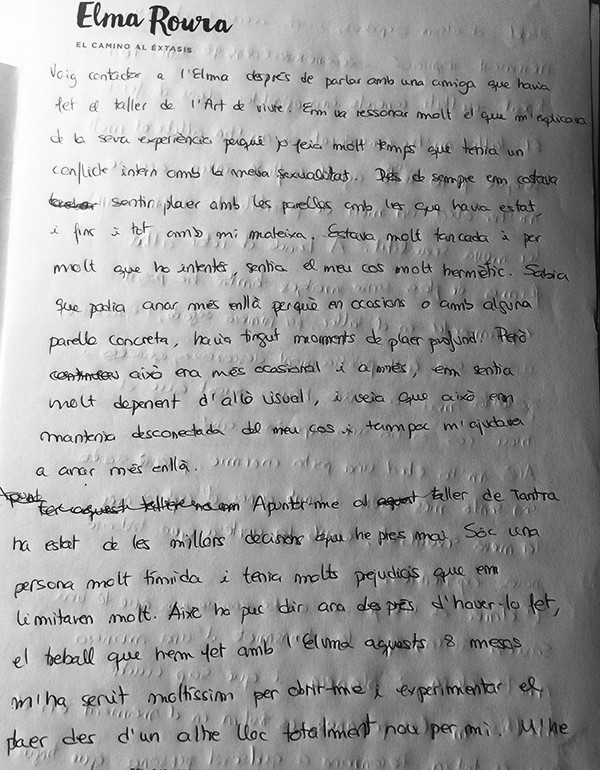 Elma Roura
EL CAMINO AL ÉXTASIS
Vaig contactar a l'Elma després de parlar amb una amiga que havia
fet el taller de l'Art de viure. Em va ressonar molt el que m'explicava
de la seva experiència perquè jo feia molt temps que tenia un
conflicte intern amb la meva sexualitat. Des de sempre em costava
sentir plaer amb les parelles amb les que havia estat,
i fins i tot amb mi mateixa. Estava molt tancada i per
molt que ho intentés, sentia el meu cos molt hermètic. Sabia
que podia anar més enllà perquè en ocasions o amb alguna
parella concreta, havia tingut moments de plaer profund. Però
això era més ocasional i a més, em sentia
molt depenent d'allò visual, i veia que això em
mantenia desconectada del meu cos i tampoc m'ajudava
a anar més enllà.
Apuntar-me al taller de Tantra
ha estat de les millors decisions que he pres mai. Sóc una
persona molt tímida i tenia molts prejudicis que em
limitaven molt. Això ho puc dir ara després d'haver-lo fet,
el treball que hem fet amb l'Elma aquests 8 mesos
m'ha servit moltíssim per obrir-me i experimentar el
plaer des d'un altre lloc totalment nou per mi. M'he